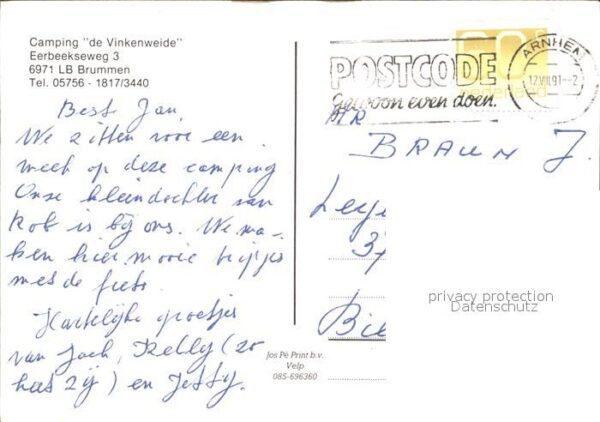 Camping "de Vinkenweide"
Eerbeekseweg 3
6971 LB Brummen
Tel. 05756 - 1817/3440
Best Jan,
We zitten voor een
week op deze camping
Onze kleindochter van
Rob is bij ons. We ma-
ken hier mooie tripjes
met de fiets.
Hartelijke groetjes
van Jack, Kelly (zo
heet zij) en Jetty.
60
nederland
POSTCODE
gewoon even doen.
ARNHEM
12.VIII.91-2
BRAUN J.
37
Bie
privacy protection
Datenschutz
Jos Pé Print b.v.
Velp
085-696360